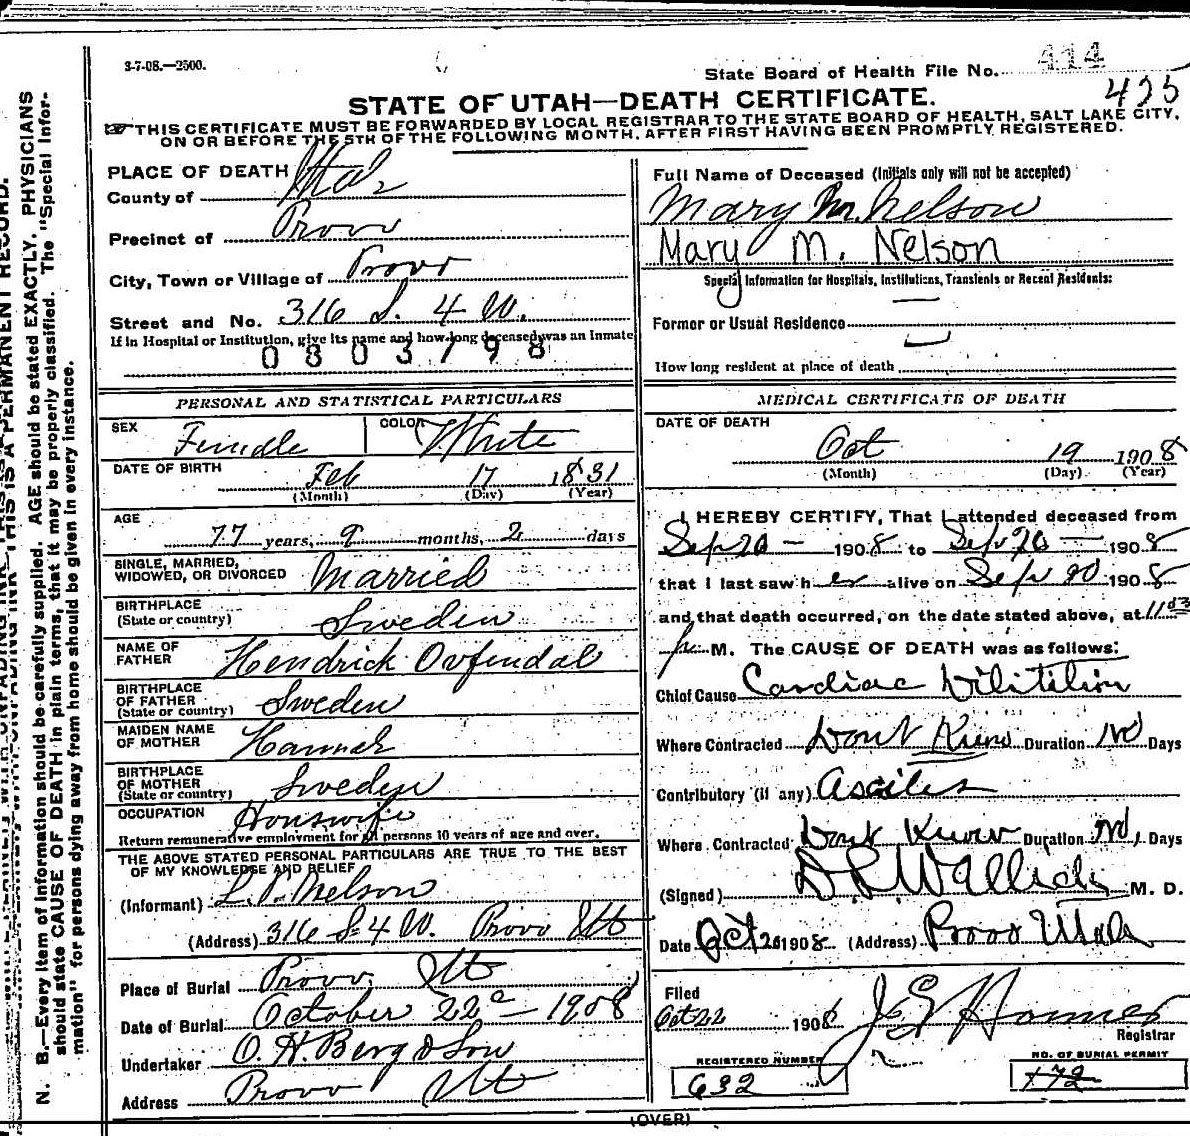 3-7-08.—2500.
State Board of Health File No. 414
425
STATE OF UTAH—DEATH CERTIFICATE.
THIS CERTIFICATE MUST BE FORWARDED BY LOCAL REGISTRAR TO THE STATE BOARD OF HEALTH, SALT LAKE CITY,
ON OR BEFORE THE 5TH OF THE FOLLOWING MONTH, AFTER FIRST HAVING BEEN PROMPTLY REGISTERED.
PLACE OF DEATH
County of Utah
Precinct of Provo
City, Town or Village of Provo
Street and No. 316 S. 4 W.
If in Hospital or Institution, give its name and how long deceased was an Inmate
0803798
PERSONAL AND STATISTICAL PARTICULARS
SEX Female COLOR White
DATE OF BIRTH Feb 17 1831
(Month) (Day) (Year)
AGE 77 years, 9 months, 2 days
SINGLE, MARRIED,
WIDOWED, OR DIVORCED Married
BIRTHPLACE
(State or country) Sweden
NAME OF
FATHER Hendrick
BIRTHPLACE
OF FATHER
(State or country) Sweden
MAIDEN NAME
OF MOTHER Hannah
BIRTHPLACE
OF MOTHER
(State or country) Sweden
OCCUPATION Houswife
Return remunerative employment for all persons 10 years of age and over.
THE ABOVE STATED PERSONAL PARTICULARS ARE TRUE TO THE BEST
OF MY KNOWLEDGE AND BELIEF
(Informant) L. P. Nelson
(Address) 316 S. 4 W. Provo Ut
Place of Burial Provo, Ut
Date of Burial October 22d 1908
Undertaker O. H. Berg & Son
Address Provo Ut
Full Name of Deceased (Initials only will not be accepted)
Mary M. Nelson
Mary M. Nelson
Special Information for Hospitals, Institutions, Transients or Recent Residents:
Former or Usual Residence
How long resident at place of death
MEDICAL CERTIFICATE OF DEATH
DATE OF DEATH
Oct 19 1908
(Month) (Day) (Year)
I HEREBY CERTIFY, That I attended deceased from
Sep 20 1908 to Sep 20 1908
that I last saw her alive on Sep 20 1908
and that death occurred, on the date stated above, at 11
p M. The CAUSE OF DEATH was as follows:
Chief Cause Cardiac
Where Contracted Dont Know Duration Days
Contributory (if any) Ascites
Where Contracted Dont Know Duration Days
(Signed) M. D.
Date Oct 20 1908 (Address) Provo Utah
Filed
Oct 22 1908
Registrar
REGISTERED NUMBER
632
NO. OF BURIAL PERMIT
172
(OVER)
N. B.—Every item of information should be carefully supplied. AGE should be stated EXACTLY. PHYSICIANS
should state CAUSE OF DEATH in plain terms, that it may be properly classified. The "Special Infor-
mation" for persons dying away from home should be given in every instance.
THIS IS A PERMANENT RECORD.